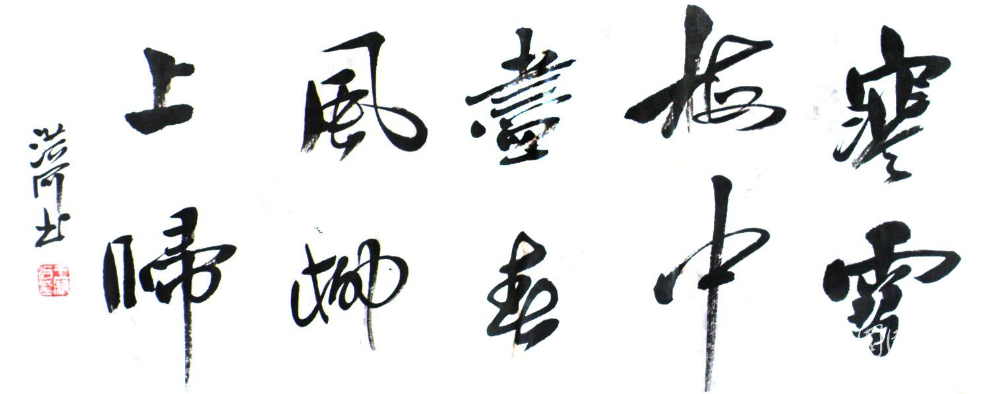 寒雪
梅中
盡春
風柳
上歸
书